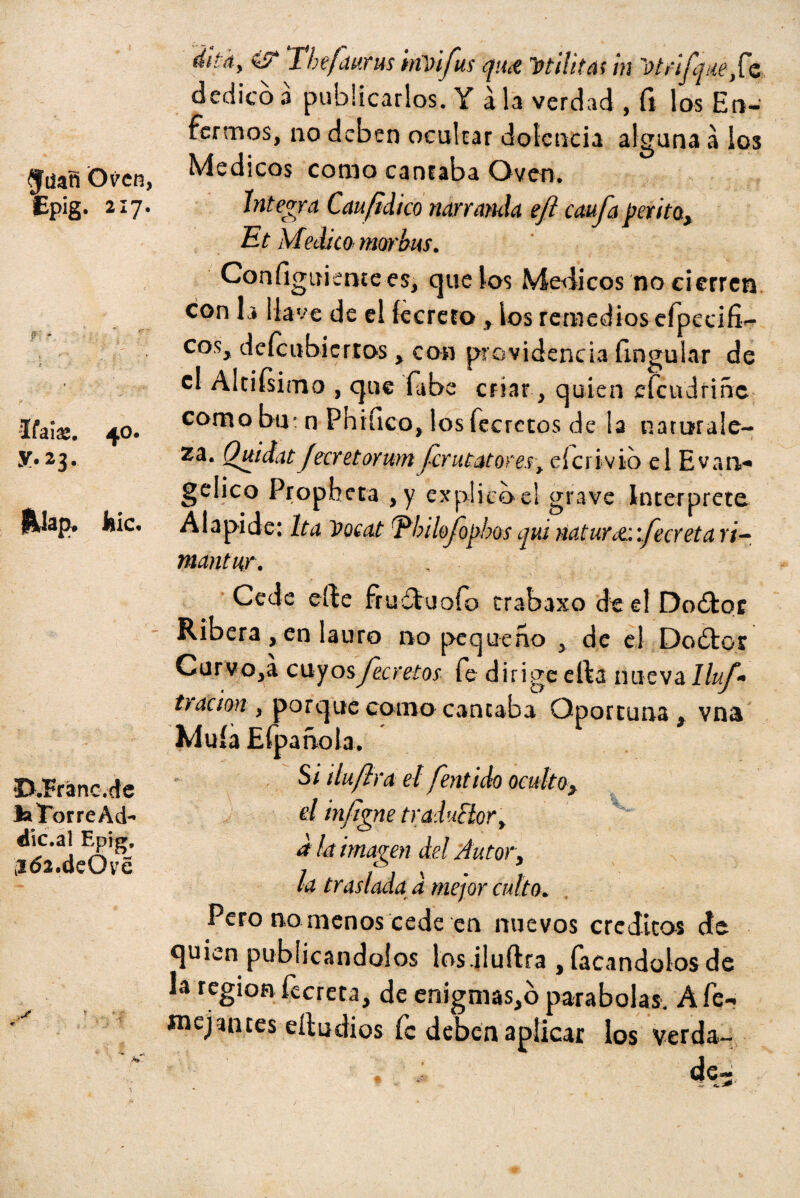 dita, & Thesaurus invisus quæ vtilitas in vtrisque, se
dedicò à publicarlos. Y à la verdad , si los En-
fermos, no deben ocultar dolencia alguna à los
Medicos como cantaba Oven.
Integra Causidico narranda est causa perito,
Et Medico morbus.
Consiguiente es, que los Medicos no cierren
con la llave de el secreto , los remedios especifi-
cos, descubiertos , con providencia singular de
el Altissimo , que sabe criar, quien escudriñe
como bu n Phisico, los secretos de la naturale-
za. Quidat secretorum scrutatores, escrivió el Evan-
gelico Propheta , y explicò el grave Interprete
Alapide: Ita vocat Philosophos qui naturæ: secreta ri-
mantur.
Cede este fructuoso trabaxo de el Doctor
Ribera , en lauro no pequeño , de el Doctor
Curvo, à cuyos secretos se dirige esta nueva Ilus-
tracion , porque como cantaba Oportuna , vna
Musa Española.
Si ilustra el sentido oculto,
el insigne traductor,
à la imagen del Autor,
la traslada à mejor culto.
Pero no menos cede en nuevos creditos de
quien publicandolos los ilustra , sacandolos de
la region secreta, de enigmas, ò parabolas. A se-
mejantes estudios se deben aplicar los verda-
de-
Juañ Oven,
Epig. 217.
Isaiæ. 40.
v. 23.
Alap. hic.
D. Franc. de
la Torre Ad-
dic. al Epig.
162. de Ovē